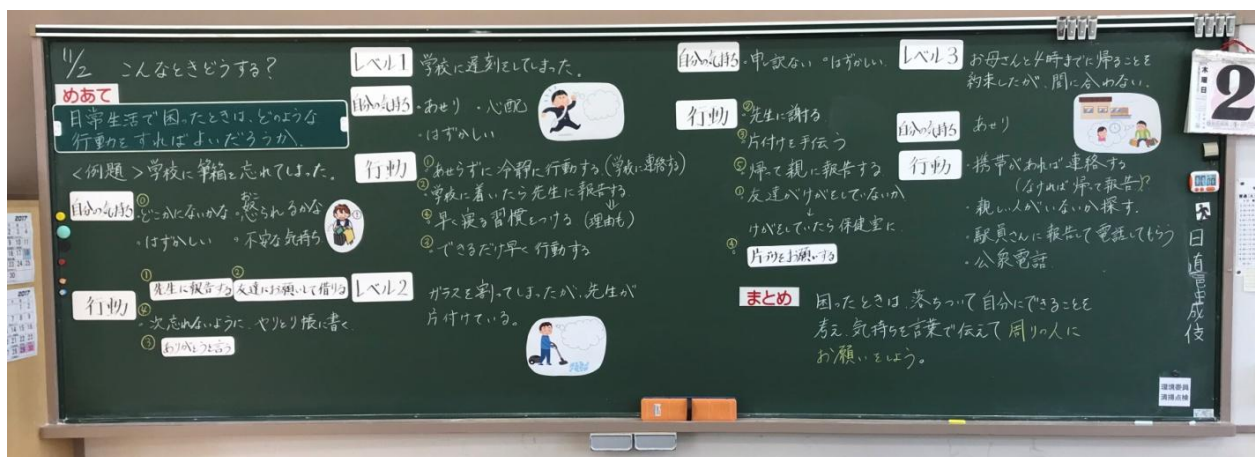 11/2 こんなときどうする?
めあて
日常生活で困ったときは、どのような
行動をすればよいだろうか。
<例題>学校に筆箱を忘れてしまった。
自分の気持ち
・どこかにないかな ・怒られるかな
おこ
・はずかしい ・不安な気持ち
行動
① ②
先生に報告する 友達にお願いして借りる
④
・次忘れないように、やりとり帳に書く。
③ ありがとうと言う
レベル1 学校に遅刻をしてしまった。
自分の気持ち ・あせり ・心配
・はずかしい
行動 ①あせらずに冷静に行動する(学校に連絡する)
②・学校に着いたら先生に報告する
④・早く寝る習慣をつける (理由も)
③・できるだけ早く行動する
レベル2 ガラスを割ってしまったが、先生が
片付けている。
自分の気持ち ・申し訳ない ・はずかしい
行動 ②・先生に謝る
③・片付けを手伝う
⑤・帰って親に報告する
①・友達がけがをしていないか
↓
けがをしていたら保健室に
④ 片づけをお願いする
レベル3 お母さんと4時までに帰ることを
約束したが、間に合わない。
自分の気持ち あせり
行動 ・携帯があれば連絡する
(なければ帰って報告)?
・親しい人がいないか探す。
・駅員さんに報告して電話してもらう
・公衆電話
まとめ 困ったときは、落ちついて自分にできることを
考え、気持ちを言葉で伝えて周りの人に
お願いをしよう。
木曜日
2
日直
環境委員
清掃点検
2017
2017